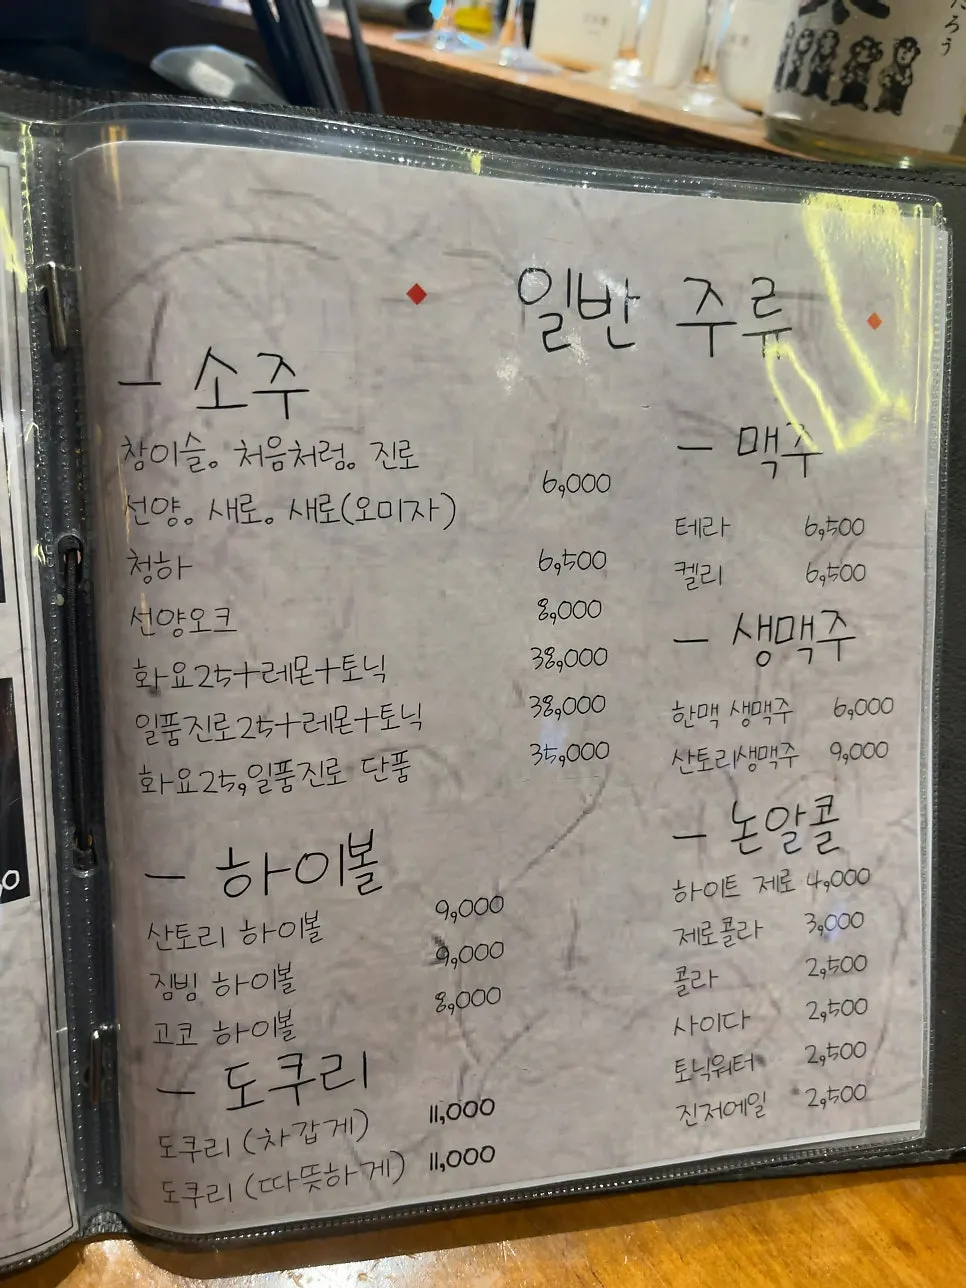 たろう
일반 주류
- 소주
참이슬. 처음처럼. 진로
선양. 새로. 새로(오미자)
6,000
청하 6,500
선양오크 8,000
화요25+레몬+토닉 38,000
일품진로25+레몬+토닉 38,000
화요25,일품진로 단품 35,000
- 하이볼
산토리 하이볼 9,000
짐빔 하이볼 9,000
고쿄 하이볼 8,000
- 도쿠리
도쿠리 (차갑게) 11,000
도쿠리 (따뜻하게) 11,000
- 맥주
테라 6,500
켈리 6,500
- 생맥주
한맥 생맥주 6,000
산토리생맥주 9,000
- 논알콜
하이트 제로 4,000
제로콜라 3,000
콜라 2,500
사이다 2,500
토닉워터 2,500
진저에일 2,500